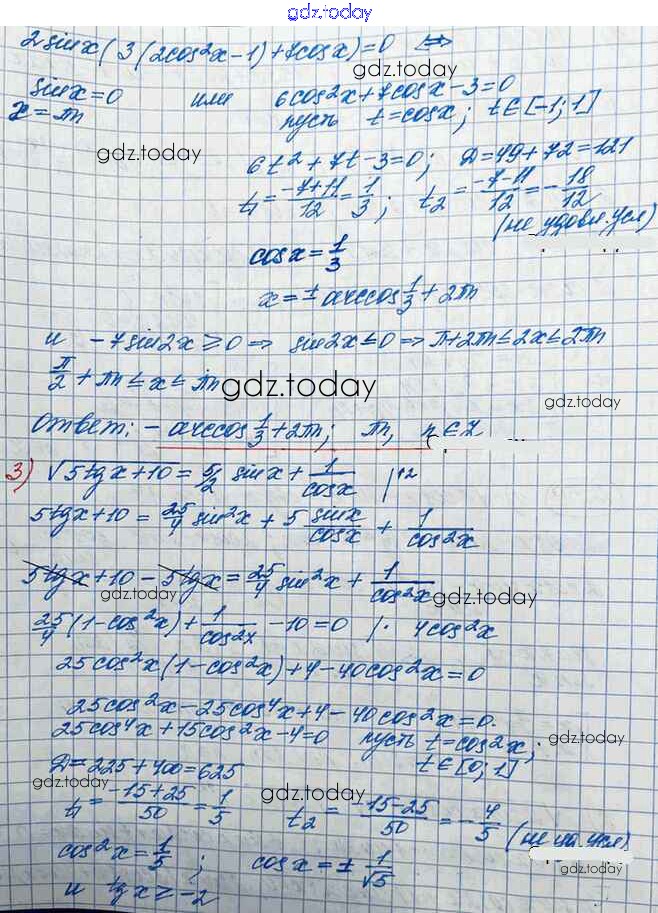 gdz.today
2 sinx(3(2cos²x-1)+7cosx)=0 ⟺
gdz.today
sinx=0 или 6cos²x+7cosx-3=0
x=πn пусть t=cosx; t∈[-1;1]
gdz.today
6t²+7t-3=0; D=49+72=121
t₁=(-7+11)/12=1/3; t₂=(-7-11)/12=-18/12
(не удовл. усл)
cosx=1/3
x=±arccos 1/3+2πn
и -7sin2x≥0⇒ sin2x≤0⇒π+2πn≤2x≤2πn
π/2+πn≤x≤πn
gdz.today
gdz.today
Ответ: -arccos 1/3+2πn; πn, n∈Z
3) √(5tgx+10)=5/2 sinx+1/cosx |↑2
5tgx+10=25/4 sin²x+5 sinx/cosx+1/cos²x
5tgx+10-5tgx=25/4 sin²x+1/cos²x
gdz.today
gdz.today
25/4(1-cos²x)+1/cos²x-10=0 |· 4cos²x
25cos²x(1-cos²x)+4-40cos²x=0
25cos²x-25cos⁴x+4-40cos²x=0.
25cos⁴x+15cos²x-4=0 пусть t=cos²x;
gdz.today
D=225+400=625 t∈[0;1]
gdz.today
gdz.today
t₁=(-15+25)/50=1/5 t₂=(-15-25)/50=-4/5 (не уд. усл)
cos²x=1/5; cosx=±1/√5
gdz.today
и tgx≥-2